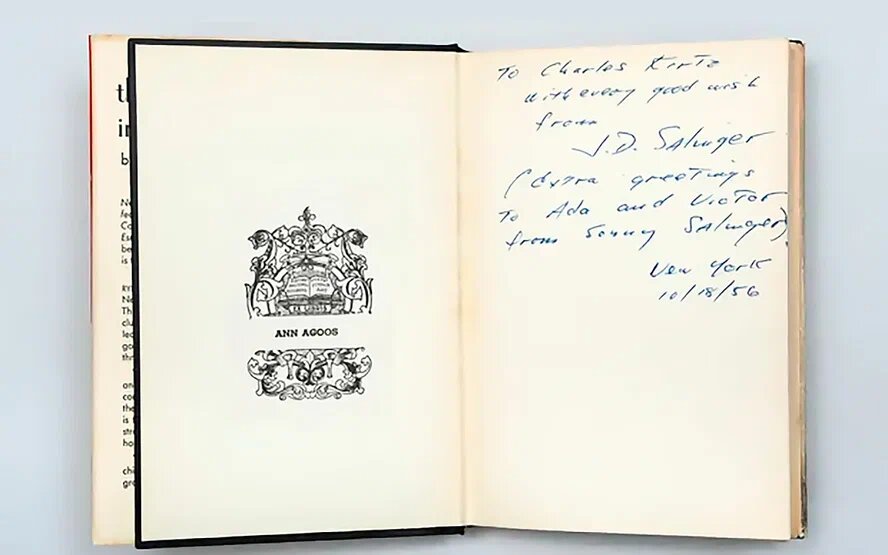 th
in
b
ANN AGOOS
To Charles Kirtz
with every good wish
from
J.D. Salinger
(Extra greetings
to Ada and Victor
from Sonny Salinger)
New York
10/18/56